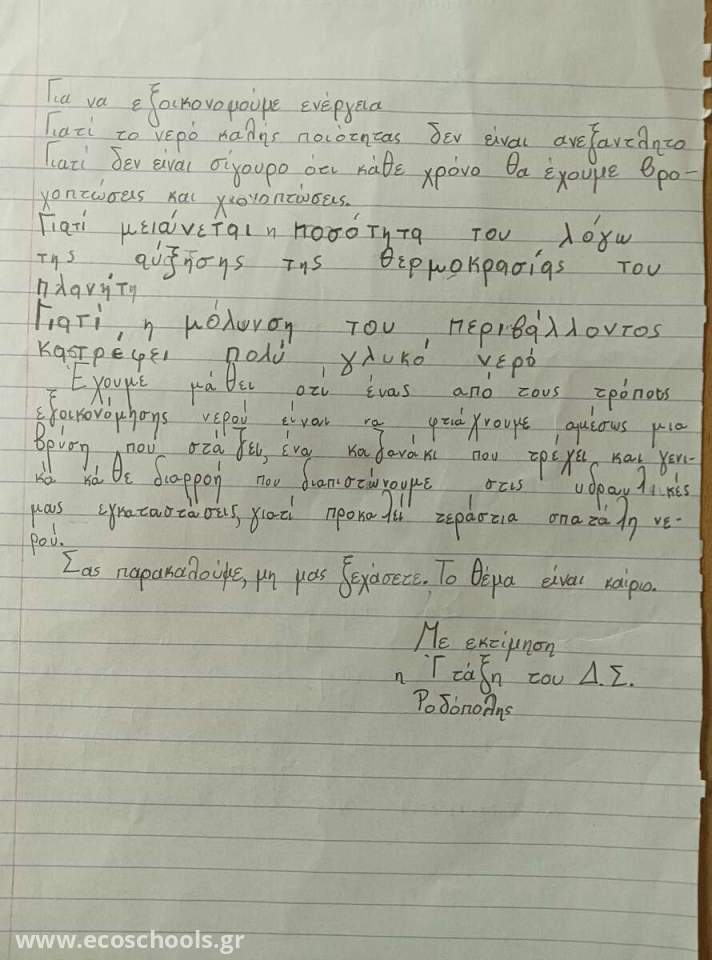 Για να εξοικονομούμε ενέργεια
Γιατί το νερό καλής ποιότητας δεν είναι ανεξάντλητο
Γιατί δεν είναι σίγουρο ότι κάθε χρόνο θα έχουμε βρο-
χοπτώσεις και χιονοπτώσεις.
Γιατί μειώνεται η ποσότητα του λόγω
της αύξησης της θερμοκρασίας του
πλανήτη
Γιατί, η μόλυνση του περιβάλλοντος
καστρέφει πολύ γλυκό νερό
Έχουμε μάθει οτί ένας από τους τρόπους
εξοικονόμησης νερού είναι να φτιάχνουμε αμέσως μια
βρύση που στάζει, ένα καζανάκι που τρέχει και γενι-
κά κάθε διαρροή που διαπιστώνουμε στις υδραυλικές
μας εγκαταστάσεις, γιατί προκαλεί τεράστια σπατάλη νε-
ρού.
Σας παρακαλούμε, μη μας ξεχάσετε. Το θέμα είναι καίριο.
Με εκτίμηση
η Γ τάξη του Δ.Σ.
Ροδόπολης
www.ecoschools.gr